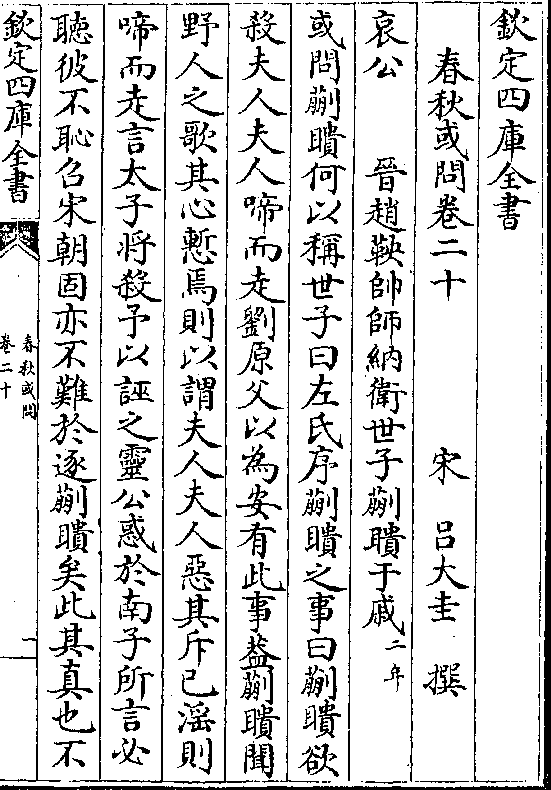 欽定四庫全書
春秋或問卷二十
宋 呂大圭 撰
哀公
晉趙鞅帥師納衛世子蒯聵于戚二年
或問蒯聵何以稱世子曰左氏序蒯聵之事曰蒯聵欲
殺夫人夫人啼而走劉原父以為安有此事葢蒯聵聞
野人之歌其心慙焉則以謂夫人夫人惡其斥己淫則
啼而走言太子將殺予以誣之靈公惑於南子所言必
聽彼不恥召宋朝固亦不難於逐蒯聵矣此其真也不
欽定四庫全書
春秋或問
卷二十
一